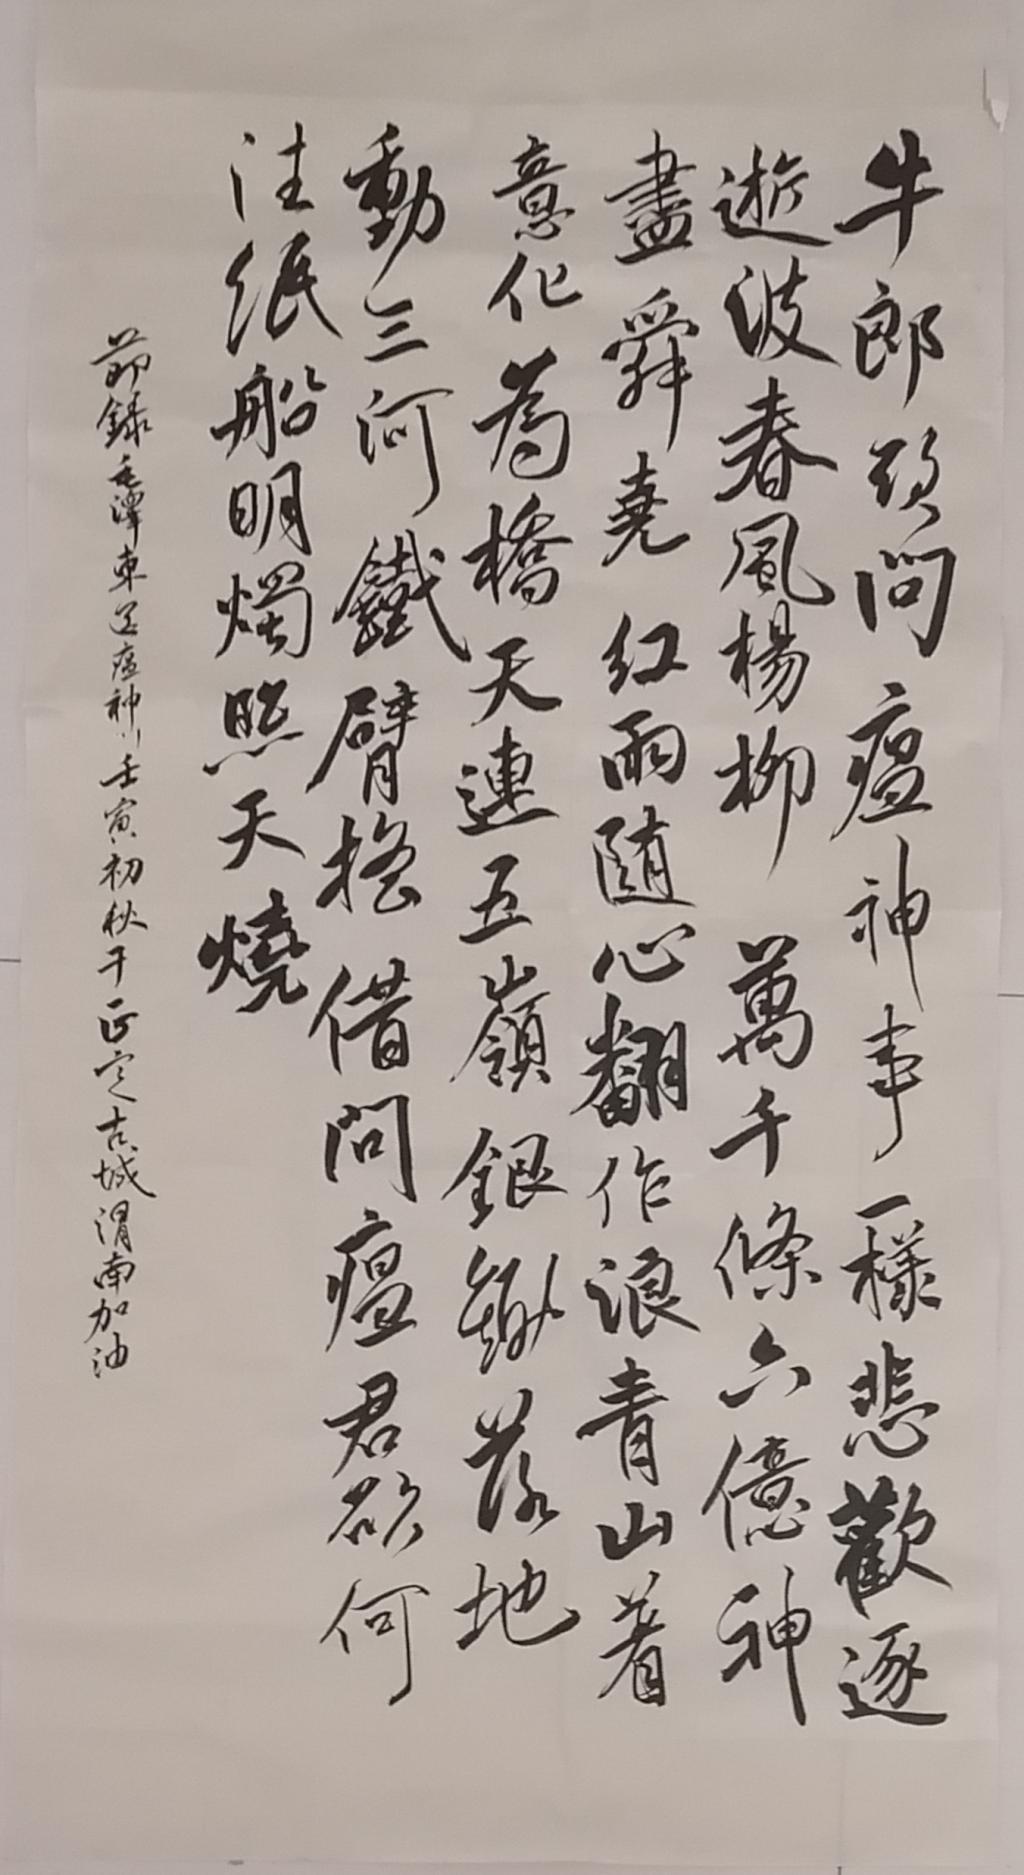 牛郎欲問瘟神事一樣悲歡逐
逝波春風楊柳萬千條六億神
盡舜堯紅雨随心翻作浪青山着
意化為橋天連五嶺銀鋤落地
動三河鐵臂搖借問瘟君欲何
往纸船明燭照天燒
節録毛澤東送瘟神壬寅初秋于正定古城渭南加油